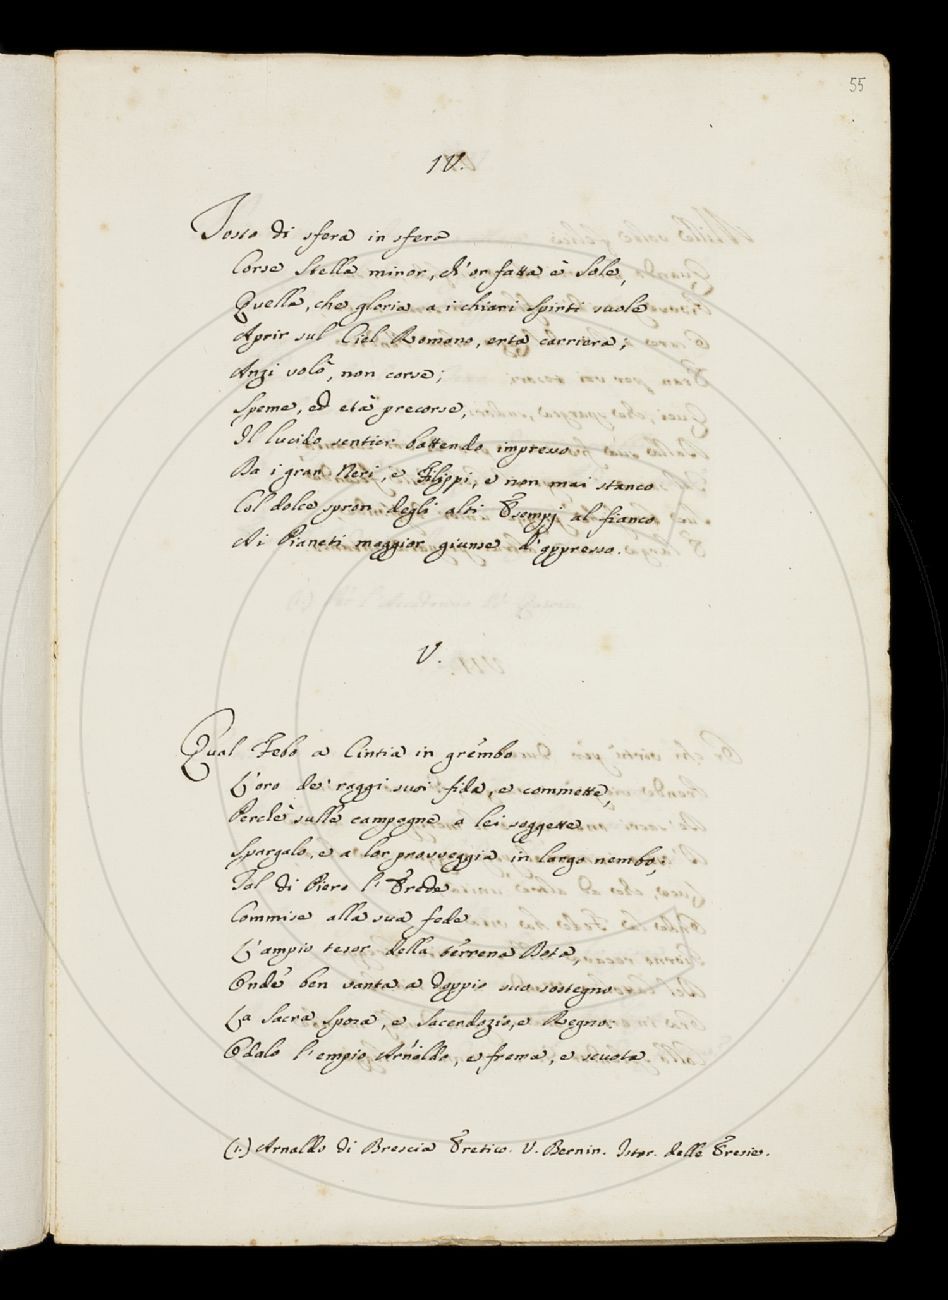 55
IV.
Tosto di sfera in sfera
Corse Stella minor, ch'or fatta è Sole,
Quella, che gloria a i chiari Spirti suole
Aprir sul Ciel Romano, erta carriera;
Anzi volò, non corse;
Speme, ed età precorse,
Il lucido sentier battendo impresso
Da i gran Neri, e Filippi, e non mai stanco
Col dolce spron degli alti Esempj al fianco
Ai Pianeti maggior giunse d'appresso.
V.
Qual Febo a Cintia in grembo
L'oro de' raggi suoi fida, e commette,
Perchè sulle campagne a lei soggette
Spargalo, e a lor provveggia in largo nembo;
Tal di Piero l'Erede
Commise alla sua fede
L'ampio tesor della terrena Dote,
Onde ben vanta a doppio suo sostegno
La Sacra Sposa, e Sacerdozio, e Regno:
Odalo l'empio Arnaldo, e frema, e scuota
(1.) Arnaldo di Brescia Eretico. V. Bernin. Istor. delle Eresie.